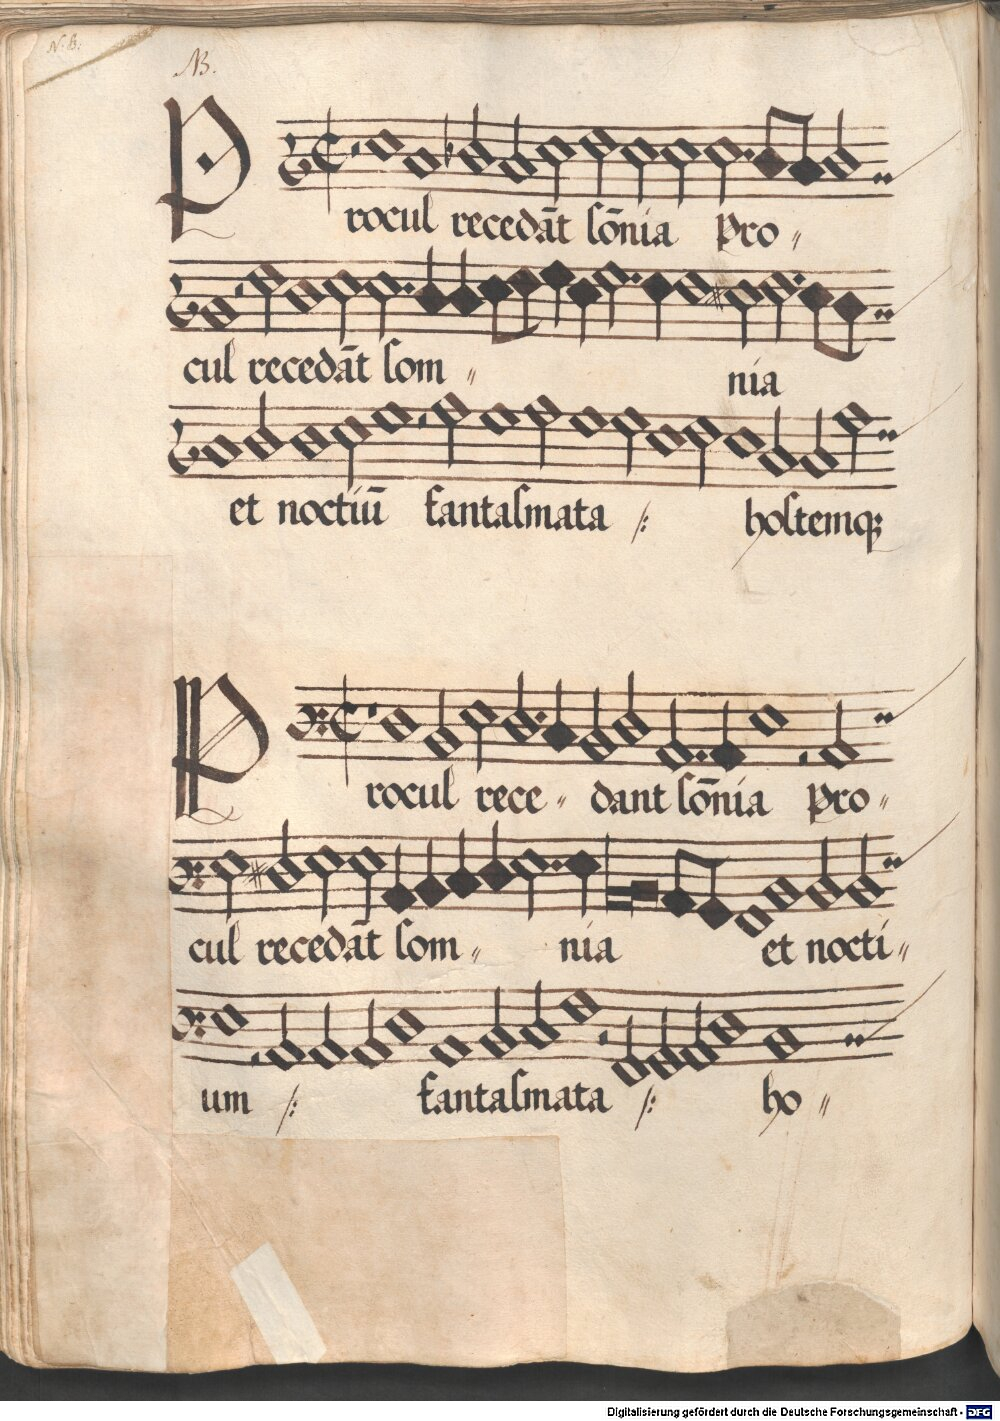 N.B.
NB.
Procul recedāt sōnia Pro〃
cul recedāt som〃 nia
et noctiū fantasmata ҉ hostemqꝫ
Procul rece〃 dant sōnia Pro〃
cul recedāt som〃 nia et nocti〃
um fantasmata ho〃
Digitalisierung gefördert durch die Deutsche Forschungsgemeinschaft - DFG